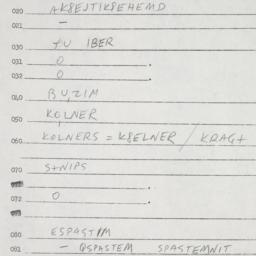 020 AKSEJTIKSEHEMD
021 —
030 FU IBER
031 0
032 0
040 BUZIM
050 KOLNER
060 KOLNERS = KSELNER / KRAGT
070 S+NIPS
072 0
080 ESPAST/M
081 — QSPASTEM SPASTEMNIT